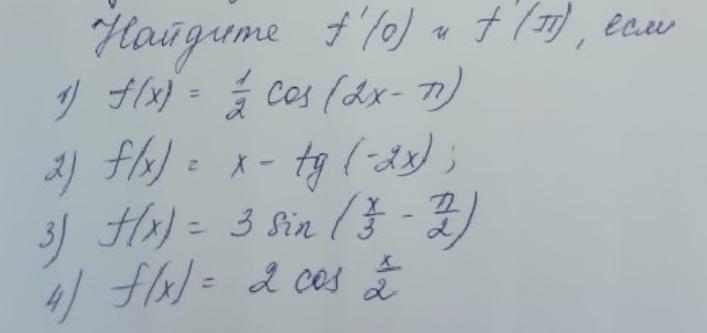 Найдите f'(0) и f'(π), если
1) f(x) = 1/2 cos (2x - π)
2) f(x) = x - tg (-2x);
3) f(x) = 3 sin (x/3 - π/2)
4) f(x) = 2 cos x/2